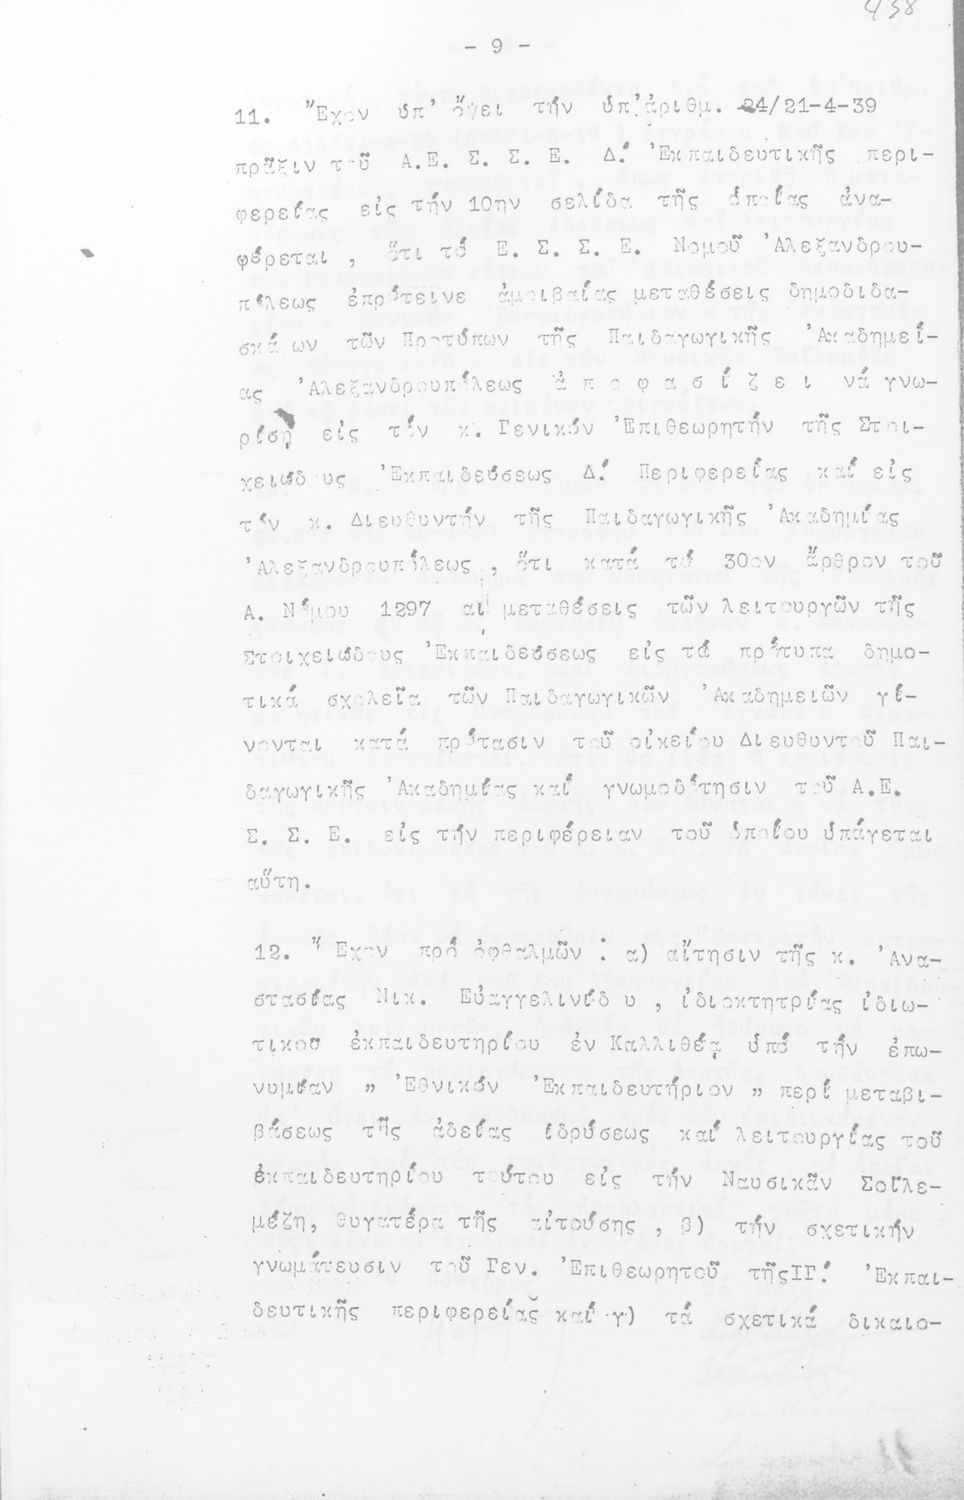 438
- 9 -
11. Ἔχον ὑπ' ὄψει τήν ὑπ' ἀριθμ. 24/21-4-39
πρᾶξιν τοῦ Α.Ε. Σ. Σ. Ε. Δ.' Ἐκπαιδευτικῆς περι-
φερείας εἰς τήν 10ην σελίδα τῆς ὁποίας ἀνα-
φέρεται , ὅτι τό Ε. Σ. Σ. Ε. Νομοῦ Ἀλεξανδρου-
πόλεως ἐπρότεινε ἀμοιβαίας μεταθέσεις δημοδιδα-
σκάλων τῶν Προτύπων τῆς Παιδαγωγικῆς Ἀκαδημεί-
ας Ἀλεξανδρουπόλεως ἀ π ο φ α σ ί ζ ε ι νά γνω-
ρίσῃ εἰς τόν κ. Γενικόν Ἐπιθεωρητήν τῆς Στοι-
χειώδους Ἐκπαιδεύσεως Δ.' Περιφερείας καί εἰς
τόν κ. Διευθυντήν τῆς Παιδαγωγικῆς Ἀκαδημίας
Ἀλεξανδρουπόλεως , ὅτι κατά τό 30ον ἄρθρον τοῦ
Α. Νόμου 1297 αἱ μεταθέσεις τῶν λειτουργῶν τῆς
Στοιχειώδους Ἐκπαιδεύσεως εἰς τά πρότυπα δημο-
τικά σχολεῖα τῶν Παιδαγωγικῶν Ἀκαδημειῶν γί-
νονται κατά πρότασιν τοῦ οἰκείου Διευθυντοῦ Παι-
δαγωγικῆς Ἀκαδημίας καί γνωμοδότησιν τοῦ Α.Ε.
Σ. Σ. Ε. εἰς τήν περιφέρειαν τοῦ ὁποίου ὑπάγεται
αὕτη.
12. Ἔχον πρό ὀφθαλμῶν : α) αἴτησιν τῆς κ. Ἀνα-
στασίας Νικ. Εὐαγγελινίδου , ἰδιοκτητρίας ἰδιω-
τικοῦ ἐκπαιδευτηρίου ἐν Καλλιθέᾳ ὑπό τήν ἐπω-
νυμίαν „ Ἐθνικόν Ἐκπαιδευτήριον „ περί μεταβι-
βάσεως τῆς ἀδείας ἱδρύσεως καί λειτουργίας τοῦ
ἐκπαιδευτηρίου τούτου εἰς τήν Ναυσικᾶν Σοϊλε-
μέζη, θυγατέρα τῆς αἰτούσης , β) τήν σχετικήν
γνωμάτευσιν τοῦ Γεν. Ἐπιθεωρητοῦ τῆςΙΓ.' Ἐκπαι-
δευτικῆς περιφερείας καί γ) τά σχετικά δικαιο-